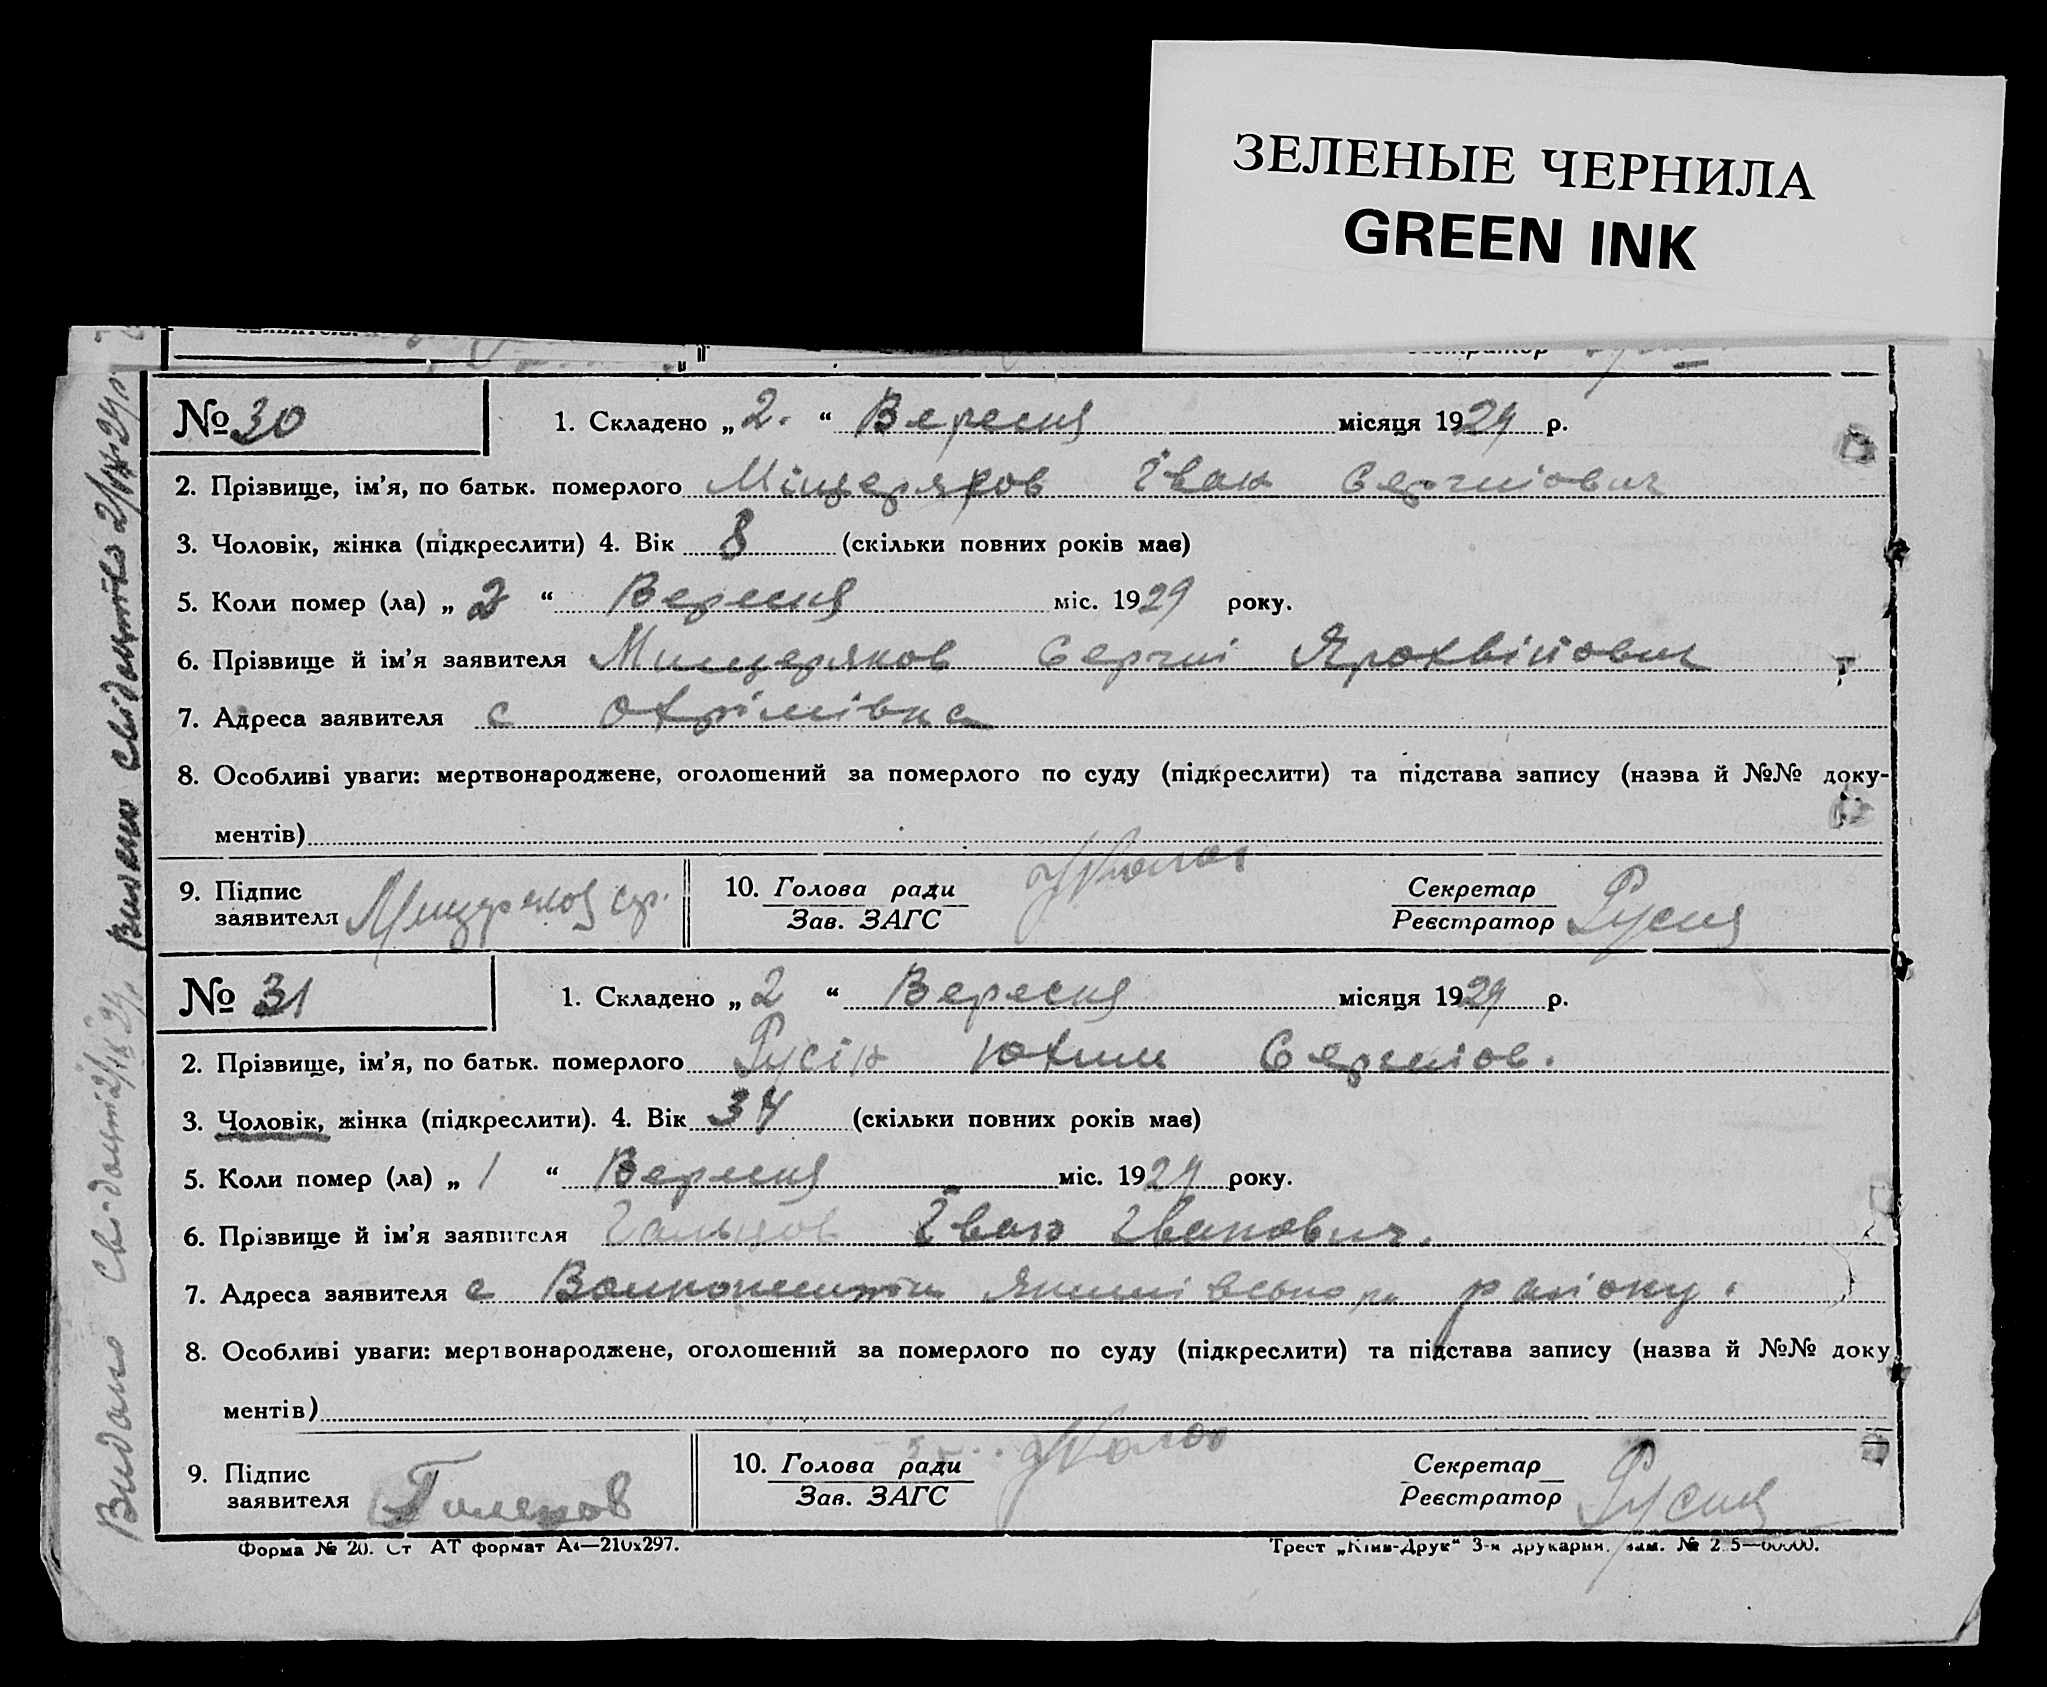 ЗЕЛЕНЫЕ ЧЕРНИЛА
GREEN INK
№ 30
1. Складено „ 2. “ Вересня місяця 1929 р.
2. Прізвище, ім’я, по батьк. померлого Міщеряков Іван Сергиіович
3. Чоловік, жінка (підкреслити) 4. Вік 8 (скільки повних років має)
5. Коли помер (ла) „ 2 “ Вересня міс. 1929 року.
6. Прізвище й ім’я заявителя Мищеряков Сергиі
7. Адреса заявителя с Охрімівка
8. Особливі уваги: мертвонароджене, оголошений за померлого по суду (підкреслити) та підстава запису (назва й №№ доку-
ментів)
9. Підпис
заявителя
10. Голова ради
Зав. ЗАГС
Секретар
Реєстратор Русин
№ 31
1. Складено „ 2 “ Вересня місяця 1929 р.
2. Прізвище, ім’я, по батьк. померлого Русін Юхим Сергиіов.
3. Чоловік, жінка (підкреслити). 4. Вік 34 (скільки повних років має)
5. Коли помер (ла) „ 1 “ Вересня міс. 1929 року.
6. Прізвище й ім’я заявителя Іван Іванович.
7. Адреса заявителя с раіону.
8. Особливі уваги: мертвонароджене, оголошений за померлого по суду (підкреслити) та підстава запису (назва й №№ доку
ментів)
9. Підпис
заявителя
10. Голова ради
Зав. ЗАГС
Секретар
Реєстратор Русин
Форма № 20. Ст АТ формат А4—210x297.
Трест „Київ-Друк“ 3-я друкарня.